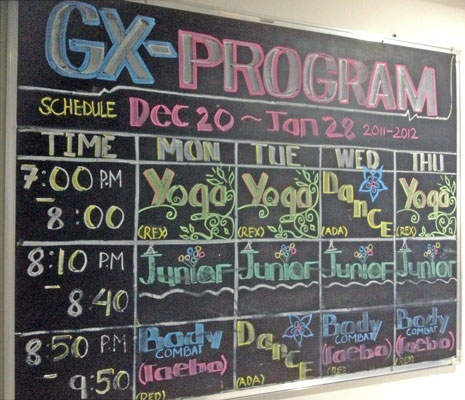 GX-PROGRAM
SCHEDULE Dec 20 ~ Jan 28 2011-2012
TIME MON TUE WED THU
7:00 P.M - 8:00
Yoga (REX)
Yoga (REX)
Dance (ADA)
Yoga (REX)
8:10 P.M - 8:40
Junior
Junior
Junior
Junior
8:50 P.M - 9:50
Body COMBAT (Taebo) (RED)
Dance (ADA)
Body COMBAT (Taebo)
Body COMBAT (Taebo)